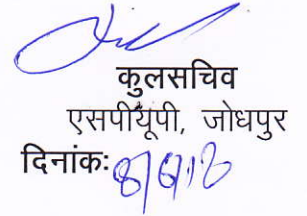 कुलसचिव
एसपीयूपी, जोधपुर
दिनांकः 8/6/18